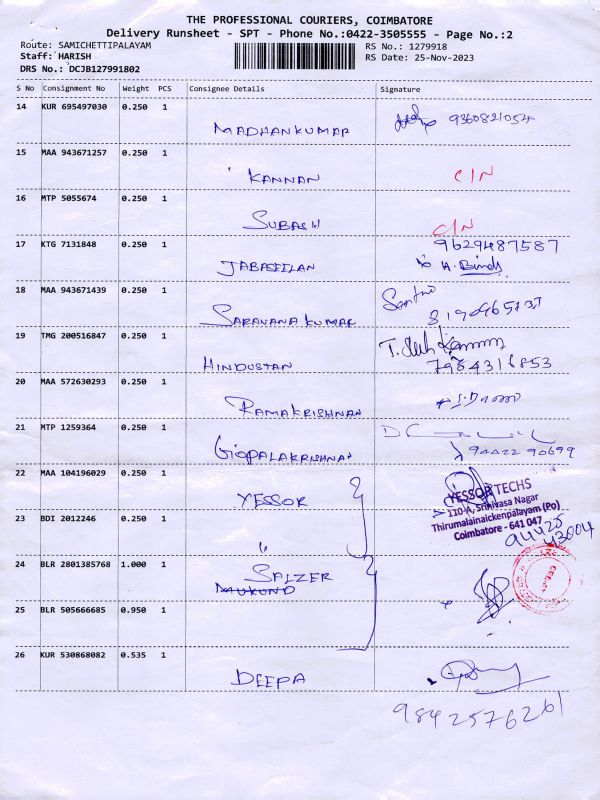 THE PROFESSIONAL COURIERS, COIMBATORE
Delivery Runsheet - SPT - Phone No.:0422-3505555 - Page No.:2
Route: SAMICHETTIPALAYAM RS No.: 1279918
Staff: HARISH RS Date: 25-Nov-2023
DRS No.: DCJB127991802
S No Consignment No Weight PCS Consignee Details Signature
14 KUR 695497030 0.250 1
MADHANKUMAR 9360821054
15 MAA 943671257 0.250 1
KANNAN C/N
16 MTP 5055674 0.250 1
SUBASH C/N
17 KTG 7131848 0.250 1 9629487587
JABASEELAN
18 MAA 943671439 0.250 1
SARAVANAKUMAR
19 TMG 200516847 0.250 1
HINDUSTAN 7984316853
20 MAA 572630293 0.250 1
RAMAKRISHNAN
21 MTP 1259364 0.250 1
GOPALAKRISHNAN 94422 90699
22 MAA 104196029 0.250 1
YESSOR YESSOR TECHS
110-A, Srinivasa Nagar
23 BDI 2012246 0.250 1 Thirumalainaickenpalayam (Po)
" Coimbatore - 641 047
94425
43004
24 BLR 2801385768 1.000 1
SALZER
MUKUND
25 BLR 505666685 0.950 1
26 KUR 530868082 0.535 1
DEEPA
9842576261